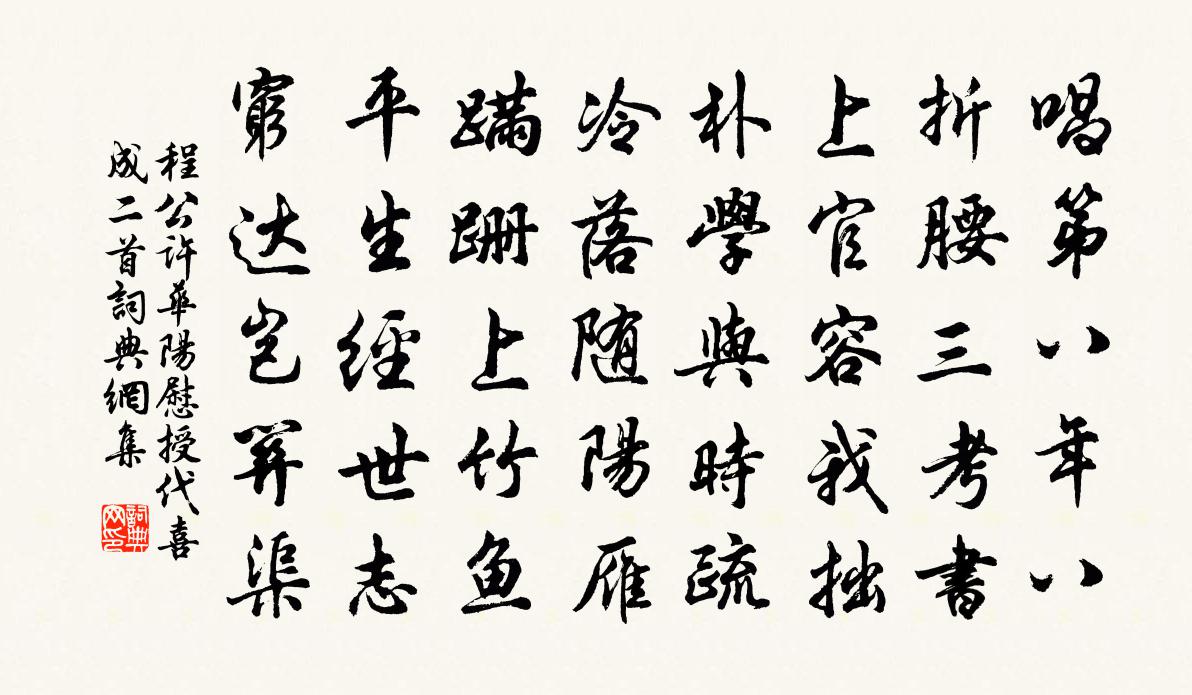 唱第八年八
折腰三考書
上官容我拙
朴學與時疏
冷落随陽雁
蹣跚上竹魚
平生經世志
窮达豈算渠
程公許華陽慰授代喜
成二首詞典網集
詞典网印